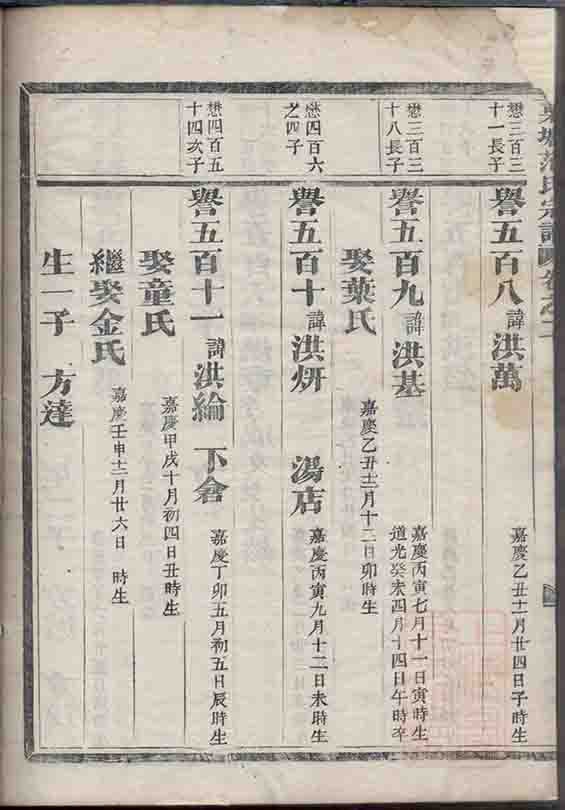 氏宗譜 卷之二
懋三百三
十一長子
譽五百八 諱洪萬
嘉慶乙丑十一月廿四日子時生
懋三百三
十八長子
譽五百九 諱洪基
嘉慶丙寅七月十一日寅時生
道光癸未四月十四日午時卒
娶葉氏
嘉慶乙丑十二月十二日卯時生
懋四百六
之四子
譽五百十 諱洪妍 湯店
嘉慶丙寅九月十二日未時生
懋四百五
十四次子
譽五百十一 諱洪綸 下倉
嘉慶丁卯五月初五日辰時生
娶童氏
嘉慶甲戌十月初四日丑時生
繼娶金氏
嘉慶壬申十二月廿六日 時生
生一子 方達